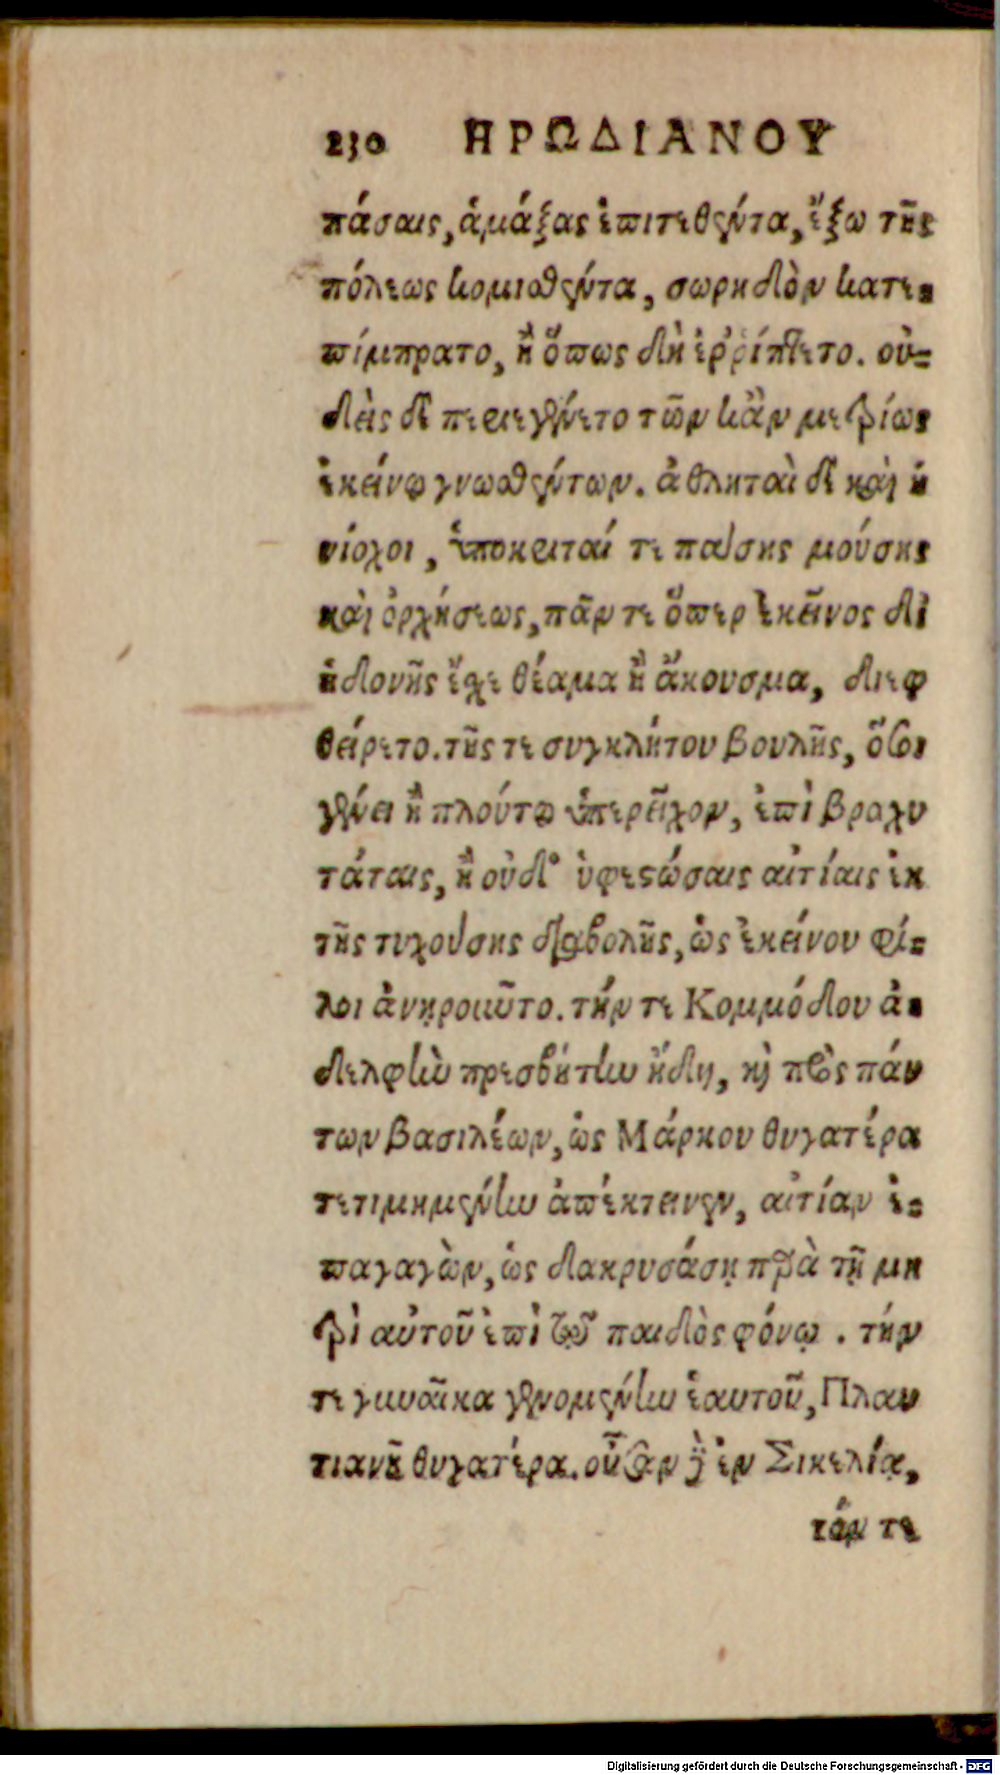 230 ΗΡΩΔΙΑΝΟΥ
πάσαις, ἁμάξας ἐπιτεθέντα, ἔξω τῆς
πόλεως κομισθέντα, σωρηδὸν κατε=
πίμπρατο, ἢ ὅπως δὴ ἐῤῥίπτετο. οὐ=
δεὶς δὲ περιεγένετο τῶν κἂν μετρίως
ἐκείνῳ γνωσθέντων. ἀθληταὶ δὲ καὶ ἡ
νίοχοι, ὑποκριταί τε πάσης μούσης
καὶ ὀρχήσεως, πᾶν τε ὅπερ ἐκεῖνος δι
ἡδονῆς ἔχε θέαμα ἢ ἄκουσμα, διεφ
θείρετο. τῆς τε συγκλήτου βουλῆς, ὅσοι
γένει ἢ πλούτῳ ὑπερεῖχον, ἐπὶ βραχυ
τάταις, ἢ οὐδ' ὑφεστώσαις αἰτίαις ἐκ
τῆς τυχούσης διαβολῆς, ὡς ἐκείνου φί=
λοι ἀνῃροιῶτο. τήν τε Κομμόδου ἀ=
δελφὴν πρεσβῆτιν ἤδη, καὶ πρὸς πάν
των βασιλέων, ὡς Μάρκου θυγατέρα
τετιμημένην ἀπέκτεινεν, αἰτίαν ἐ=
παγαγὼν, ὡς δακρυσάσῃ παρὰ τῇ μη
τρὶ αὐτοῦ ἐπὶ τῷ τοῦ παιδὸς φόνῳ. τήν
τε γυναῖκα γενομένην ἑαυτοῦ, Πλαυ
τιανοῦ θυγατέρα. οὖσαν δὲ ἐν Σικελίᾳ,
τόν τε
Digitalisierung gefördert durch die Deutsche Forschungsgemeinschaft - DFG